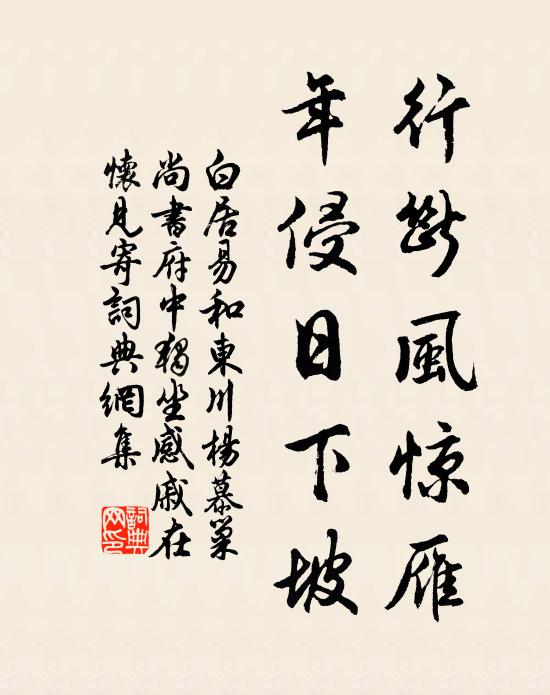 行斷風惊雁
年侵日下坡
白居易和東川楊慕巢
尚書府中獨坐感戚在
懷見寄詞典網集
詞典網印